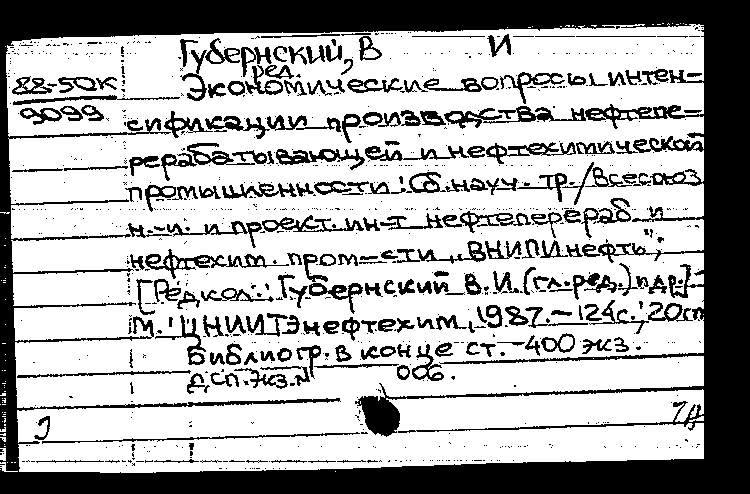 Губернский, В И
ред.
88-50К
9099
Экономические вопросы интен-
сификации производства нефтепе-
рерабатывающей и нефтехимической
промышленности: Сб. науч. тр./Всесоюз.
н.-и. и проект. ин-т нефтеперераб. и
нефтехим. пром-сти „ВНИПИнефть";
[Редкол.: Губернский В.И. (гл. ред.) и др.]-
М.: ЦНИИТЭнефтехим, 1987.-124с.; 20см
Библиогр. в конце ст. -400 экз.
ДСП. Экз. N 006.